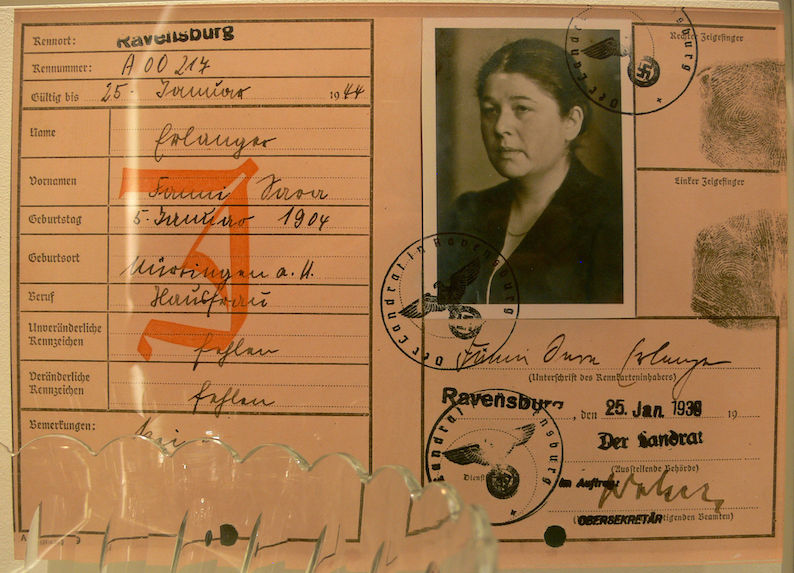 Kennort: Ravensburg
Kennnummer: A 00 217
Gültig bis 25. Januar 1944
Name
Erlanger
Vornamen Fanni Sara
Geburtstag 5. Januar 1904
Geburtsort
Nürtingen a. N.
Beruf Hausfrau
Unveränderliche
Kennzeichen fehlen
Veränderliche
Kennzeichen fehlen
Bemerkungen:
J
Rechter Zeigefinger
Linker Zeigefinger
Der Landrat in Ravensburg
Fanni Sara Erlanger
(Unterschrift des Kennkarteninhabers)
Ravensburg, den 25. Jan. 1939 19
Der Landrat
(Ausstellende Behörde)
Im Auftrag:
OBERSEKRETÄR